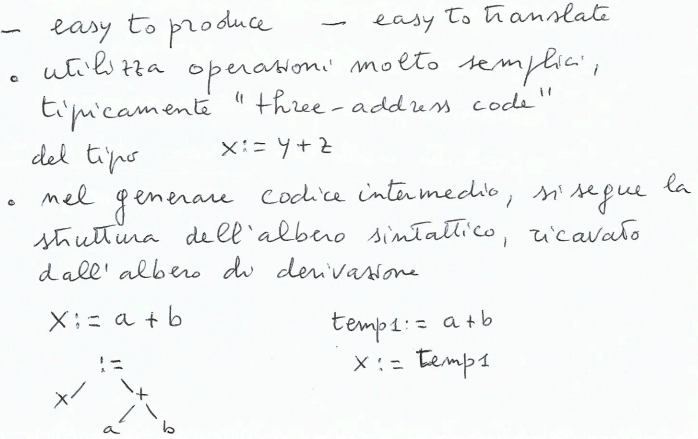 - easy to produce - easy to translate
• utilizza operazioni molto semplici,
tipicamente "three-address code"
del tipo x:= y+z
• nel generare codice intermedio, si segue la
struttura dell'albero sintattico, ricavato
dall'albero di derivazione
X:= a + b temp1:= a+b
:= x:= temp1
x +
a b